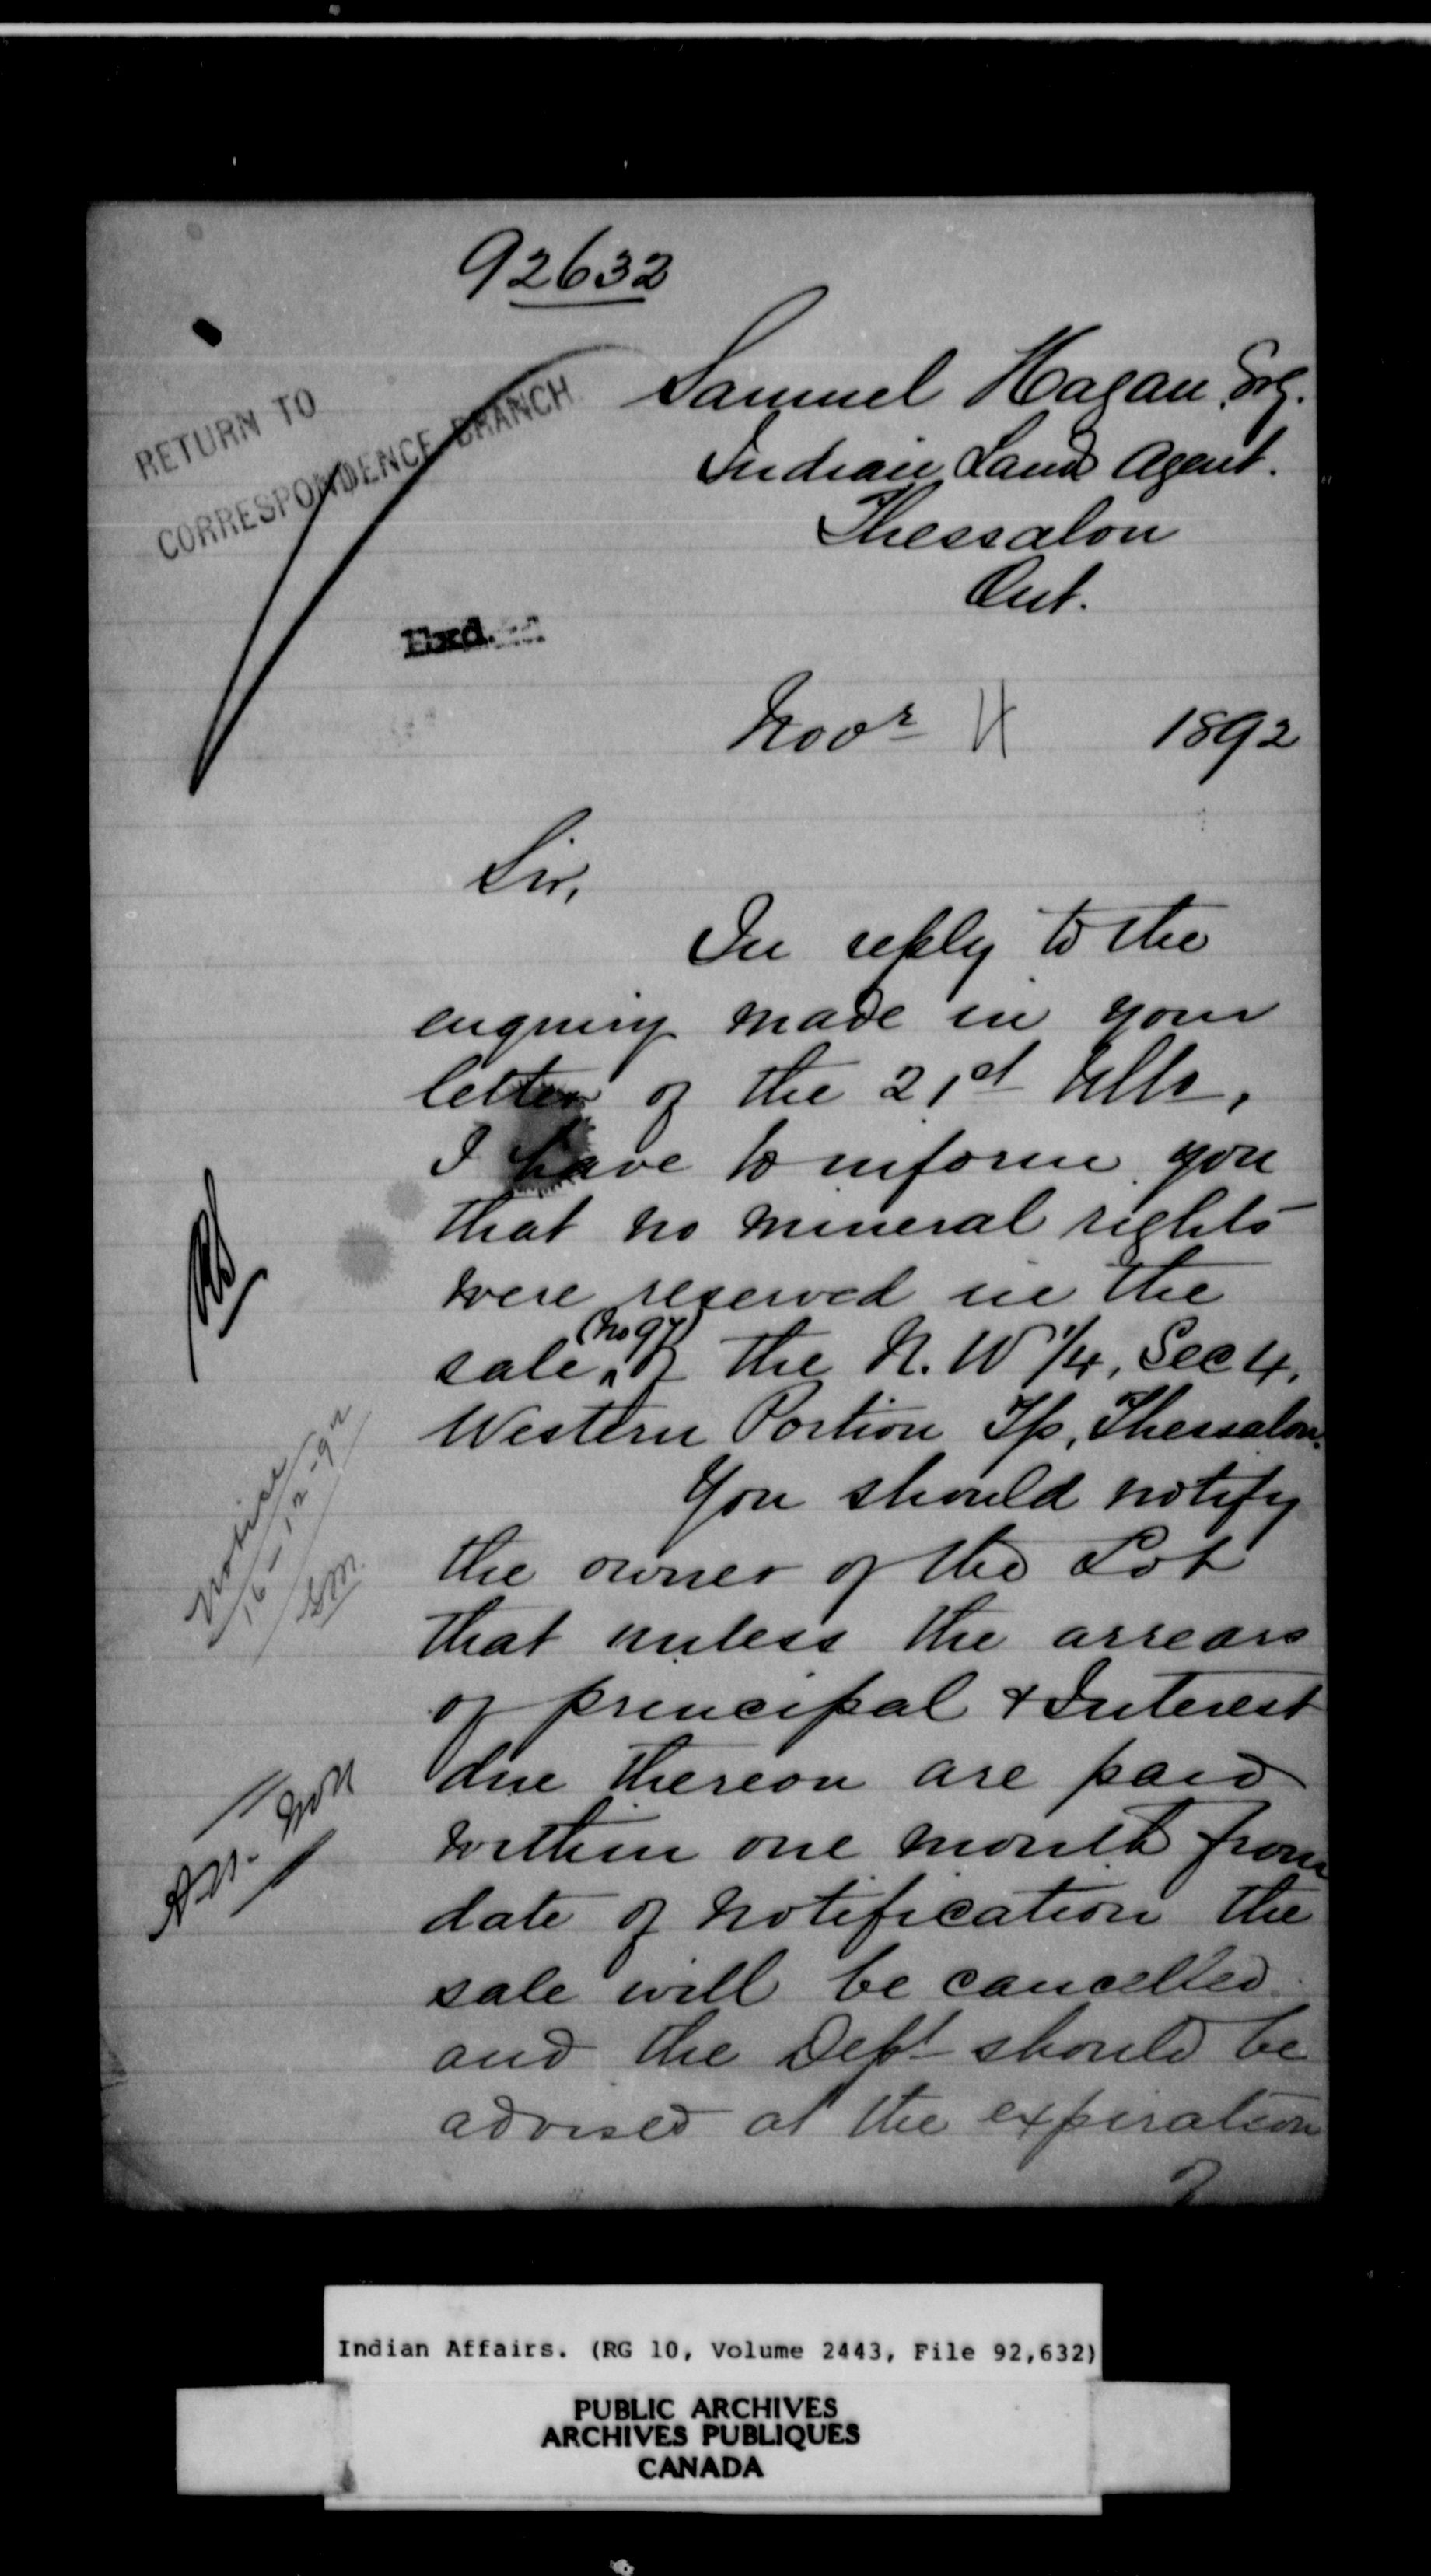 92632
RETURN TO
CORRESPONDENCE BRANCH
Samuel Hagan, Esq.
Indian Land Agent.
Thessalon
Ont.
Novr 4 1892
Sir,
In reply to the
enquiry made in your
letter of the 21st Ulto,
I have to inform you
that no mineral rights
were reserved in the
(No 97)
sale, of the N. W 1/4, Sec 4,
Western Portion Tp, Thessalon.
You should notify
the owner of the Lot
that unless the arrears
of principal & Interest
due thereon are paid
within one month from
date of notification the
sale will be cancelled
and the Dept should be
advised at the expiration
Notice
16-12-92
SM.
Indian Affairs. (RG 10, Volume 2443, File 92,632)
PUBLIC ARCHIVES
ARCHIVES PUBLIQUES
CANADA